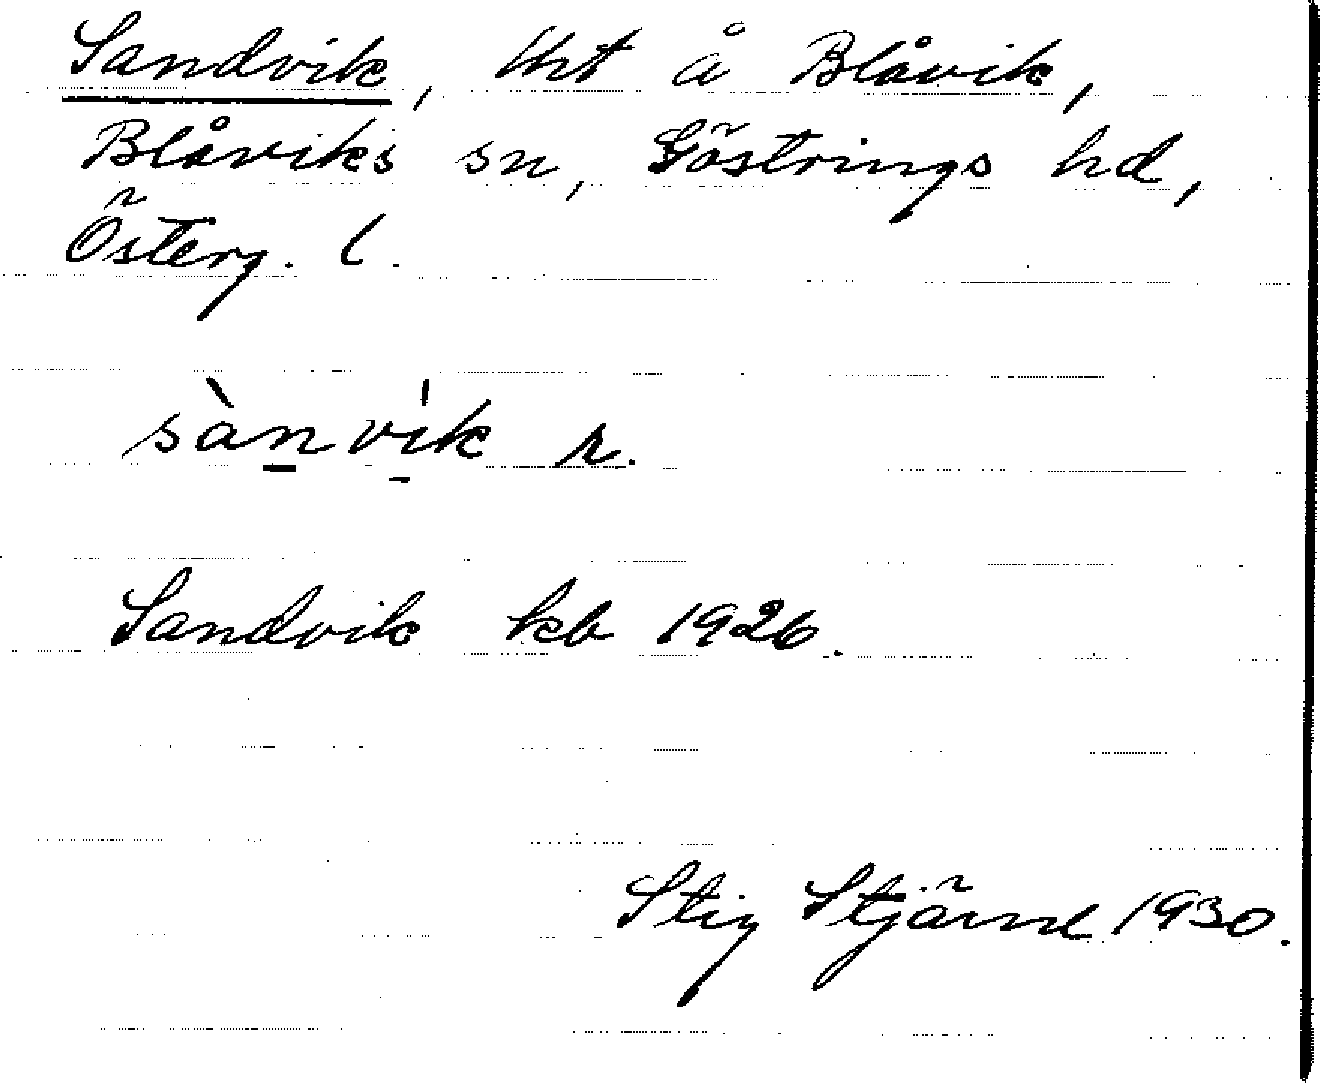 Sandvik, tht å Blåvik,
Blåviks sn, Göstrings hd,
Österg. l.
sànvìk r.
Sandvik kb 1926.
Stig Stjärne 1930.